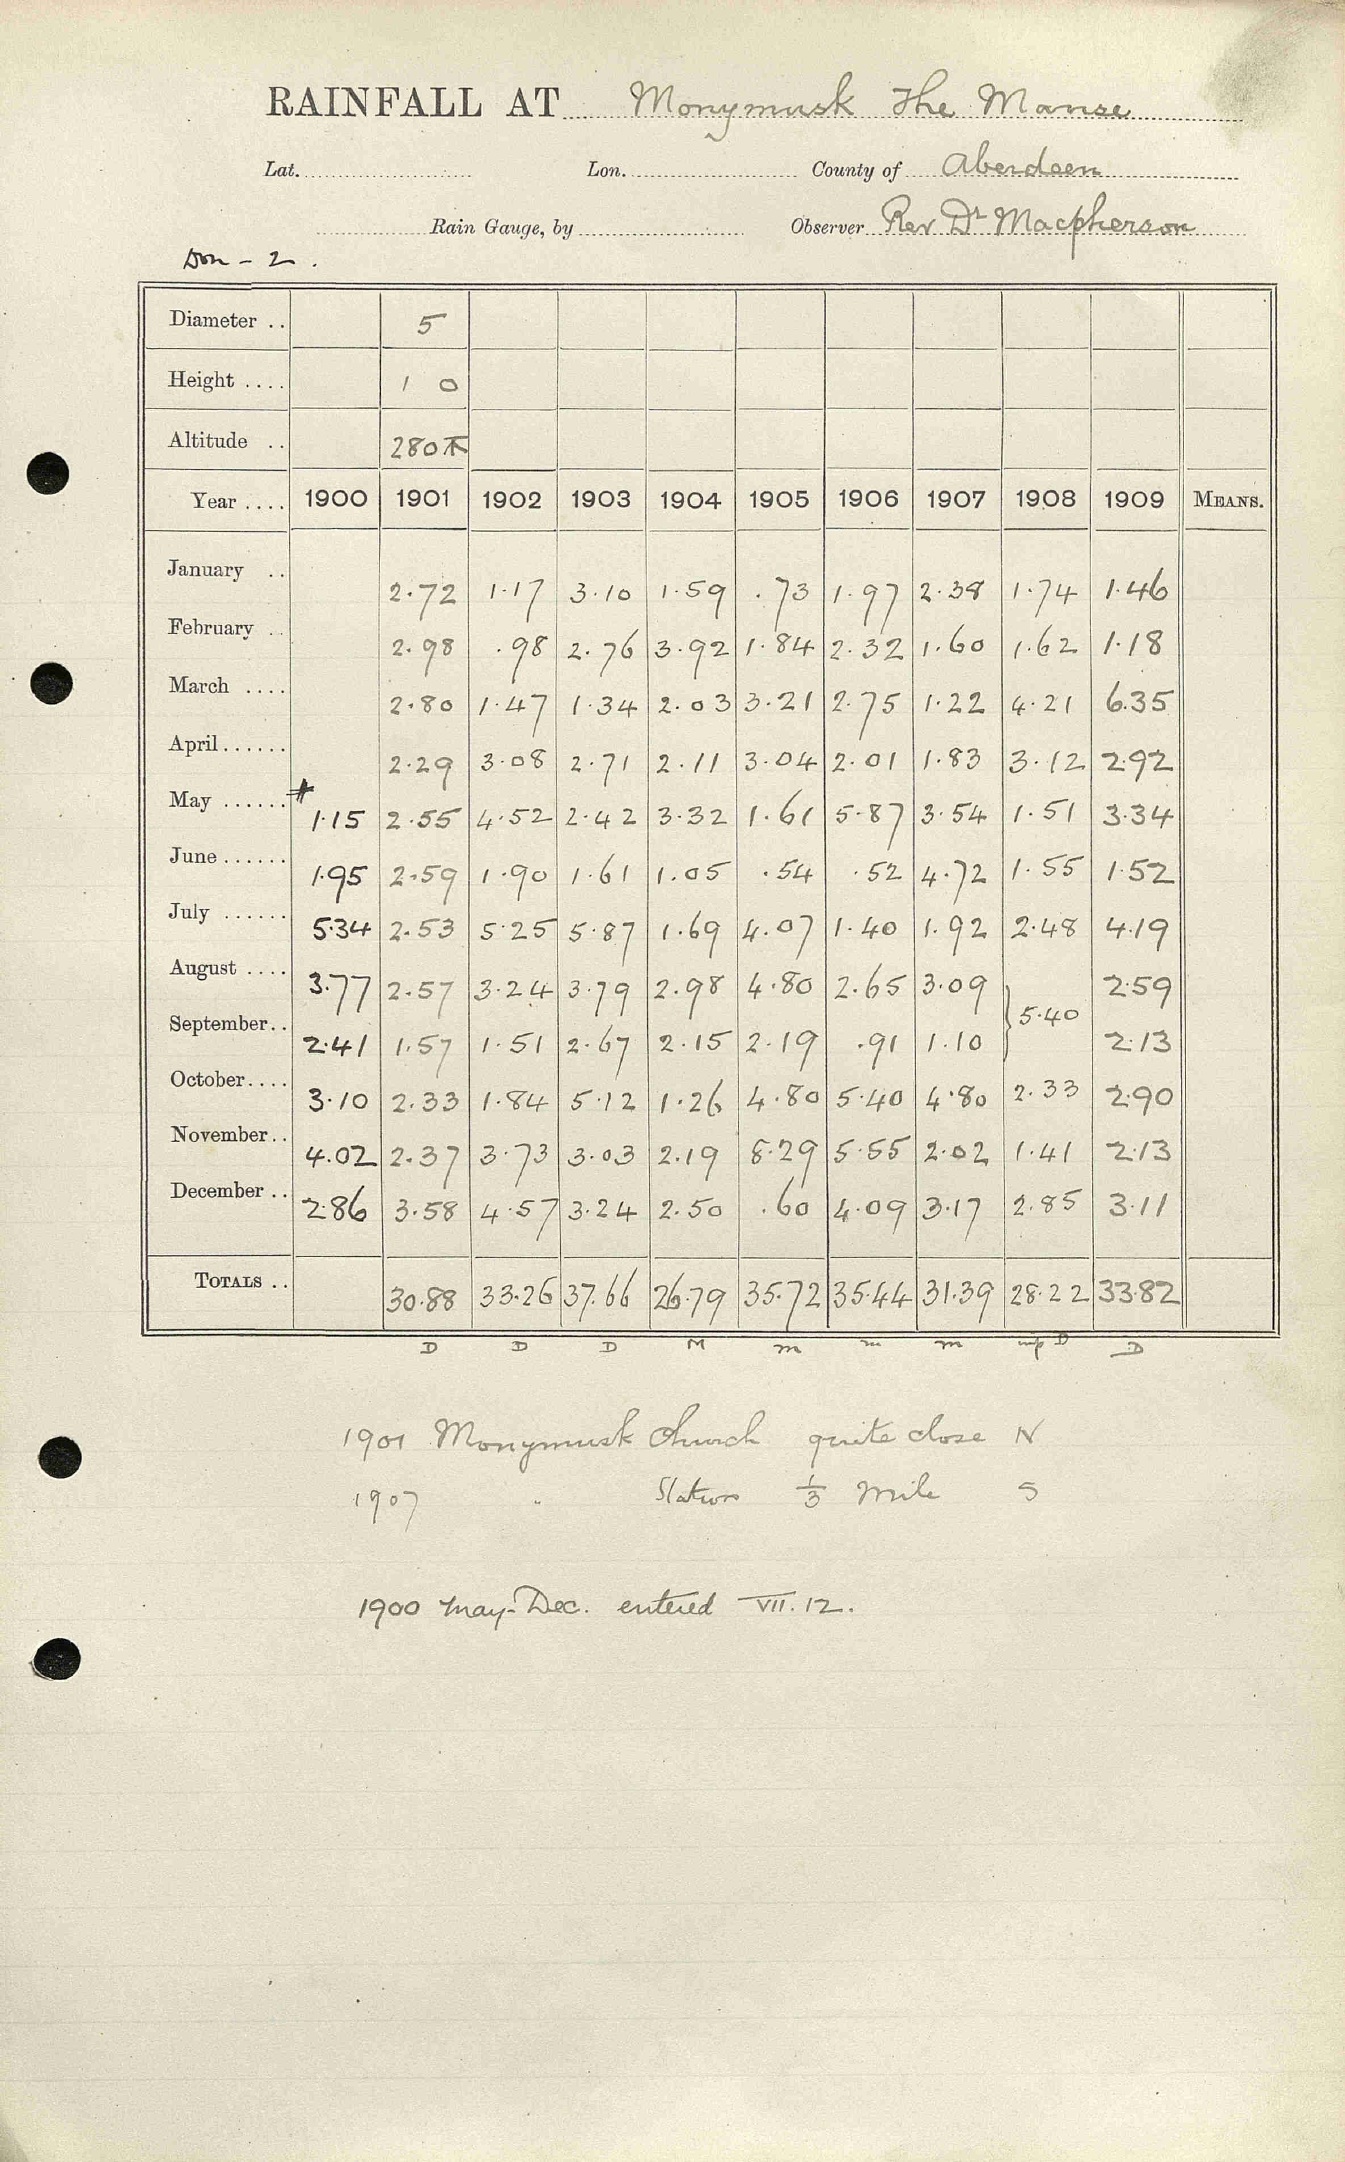 RAINFALL AT Monymusk The Manse
Lat. Lon. County of Aberdeen
Rain Gauge, by Observer Rev Dr Macpherson
Don - 2.
Diameter .. 5
Height .... 1 0
Altitude .. 280
Year .... 1900 1901 1902 1903 1904 1905 1906 1907 1908 1909 MEANS.
January .. 2.72 1.17 3.10 1.59 .73 1.97 2.38 1.74 1.46
February .. 2.98 .98 2.76 3.92 1.84 2.32 1.60 1.62 1.18
March .... 2.80 1.47 1.34 2.03 3.21 2.75 1.22 4.21 6.35
April...... 2.29 3.08 2.71 2.11 3.04 2.01 1.83 3.12 2.92
May ...... 1.15 2.55 4.52 2.42 3.32 1.61 5.87 3.54 1.51 3.34
June...... 1.95 2.59 1.90 1.61 1.05 .54 .52 4.72 1.55 1.52
July ...... 5.34 2.53 5.25 5.87 1.69 4.07 1.40 1.92 2.48 4.19
August .... 3.77 2.57 3.24 3.79 2.98 4.80 2.65 3.09 2.59
} 5.40
September.. 2.41 1.57 1.51 2.67 2.15 2.19 .91 1.10 2.13
October.... 3.10 2.33 1.84 5.12 1.26 4.80 5.40 4.80 2.33 2.90
November.. 4.02 2.37 3.73 3.03 2.19 8.29 5.55 2.02 1.41 2.13
December .. 2.86 3.58 4.57 3.24 2.50 .60 4.09 3.17 2.85 3.11
TOTALS .. 30.88 33.26 37.66 26.79 35.72 35.44 31.39 28.22 33.82
D D D M m m m D D
1901 Monymusk Church quite close N
1907 " Station 1/3 Mile S
1900 May-Dec. entered VII.12.